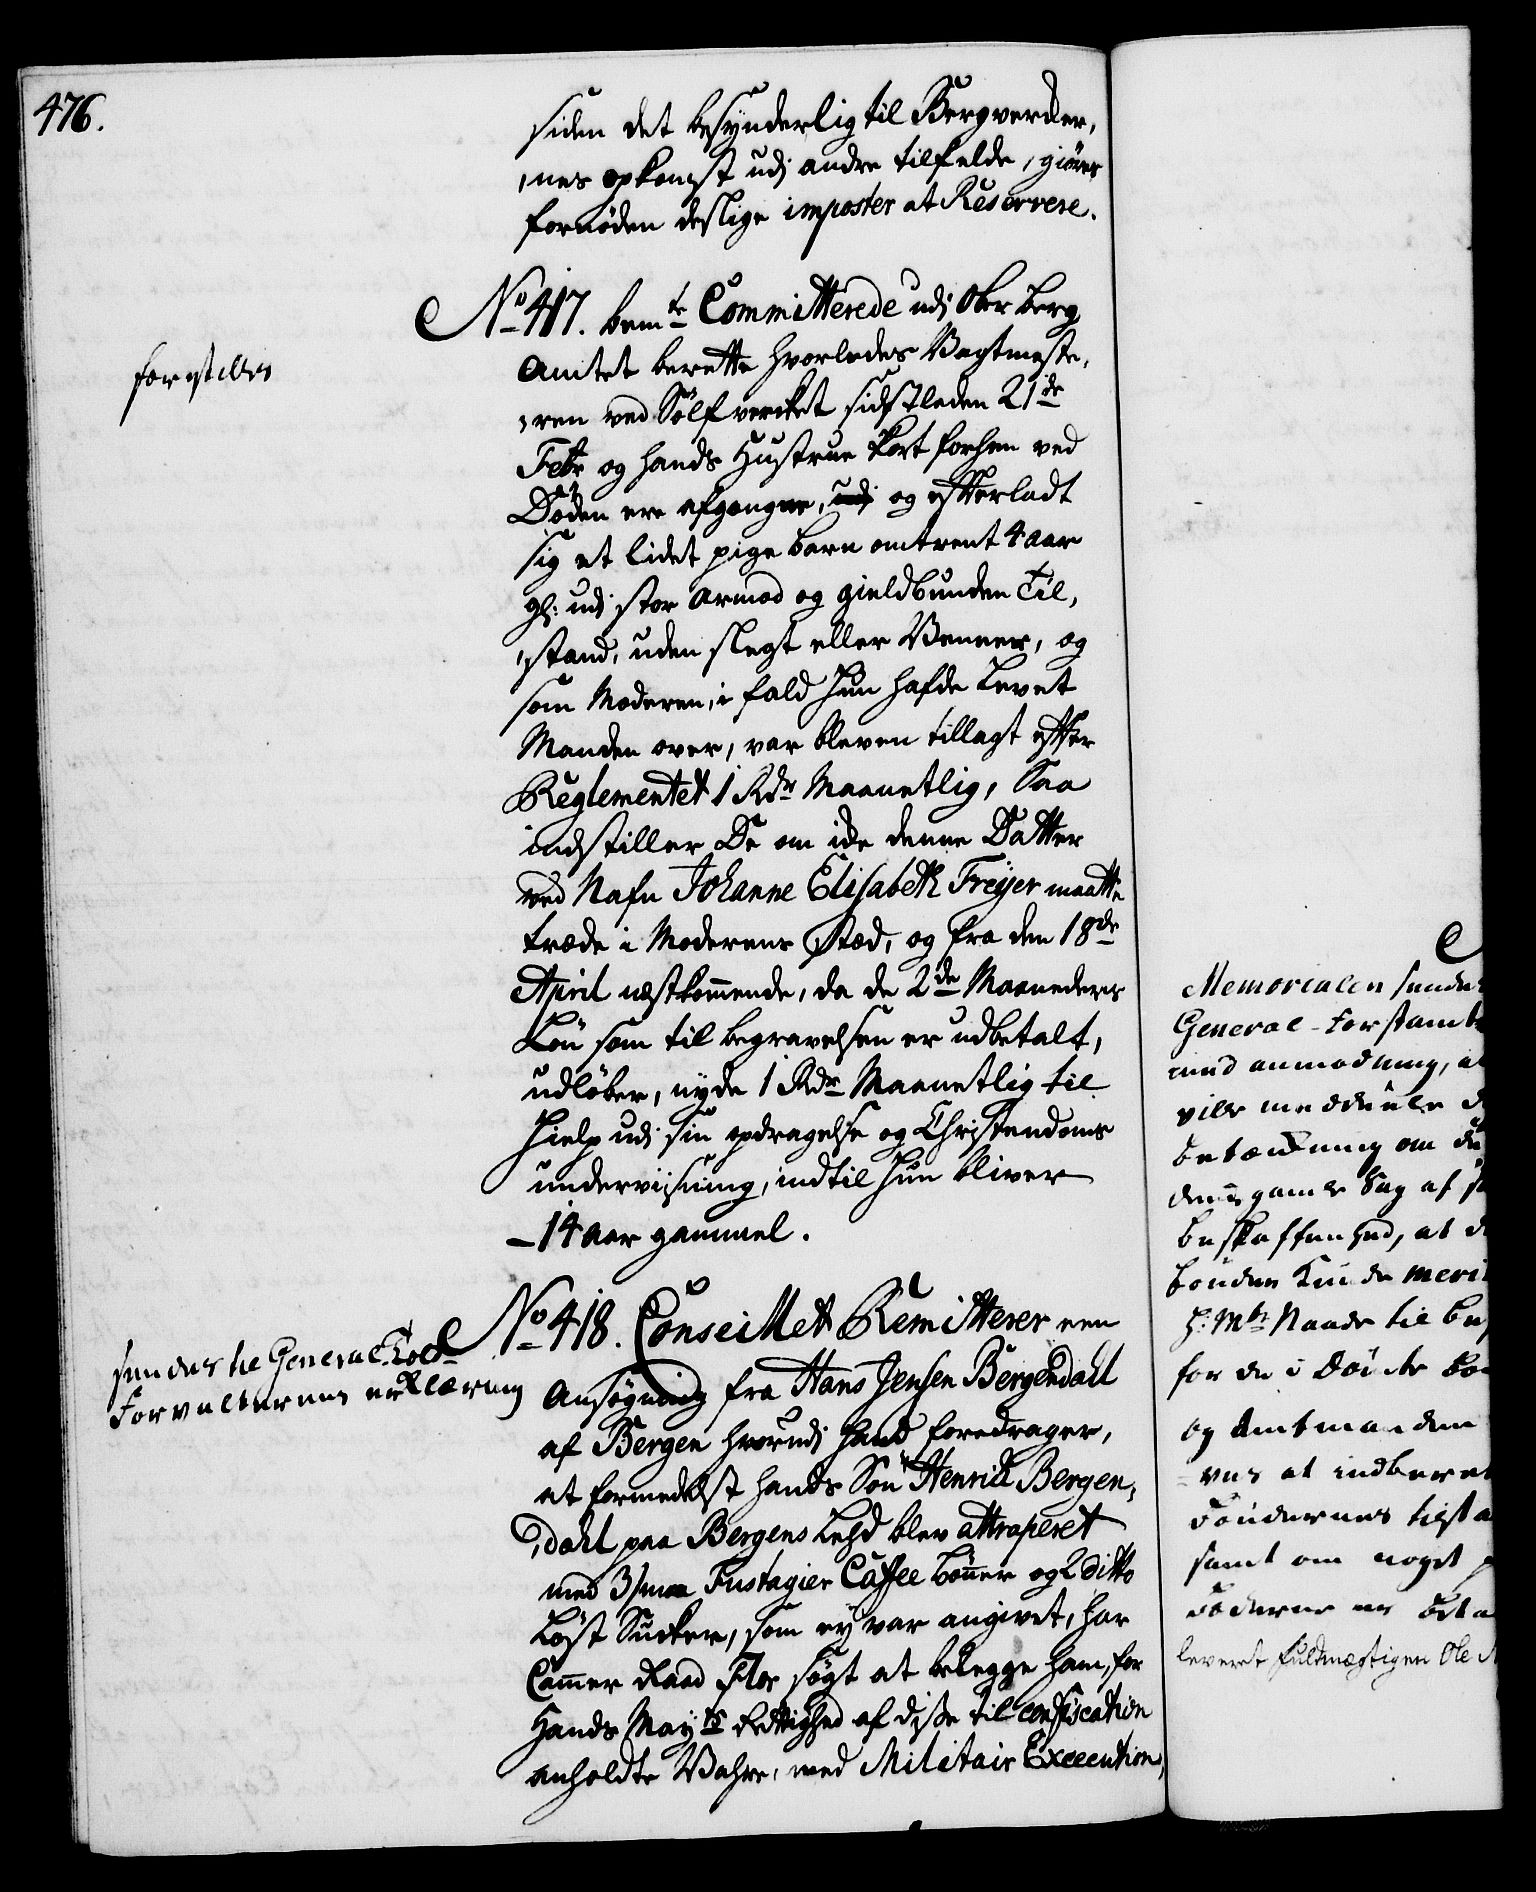 476.
siden det besynderlig til Bergverker,
,nes opkomst udj andre tilfelde, giöres
fornøden deslige imposter at Reservere.
No 417. bemte Committerede udj Ober berg
Amtet berette hvorledes Vagtmeste,
,ren ved Sölfverket sidstleden 21de
Febr og hands Hustrue kort forhen ved
Döden ere afgangne, udj og efterladt
sig et lidet pige barn omtrent 4 aar
gl: udj stor armod og gieldbunden Til,
,stand, uden slegt eller Venner, og
som Moderen, i fald hun hafde Levet
Manden over, var bleven tillagt efter
Reglementet 1 Rdr Maanetlig, Saa
indstiller De om icke denne Datter
ved Nafn Johanne Elisabeth Freyer maatte
træde i Moderens Stæd, og fra den 18de
April næstkommende, da de 2de Maaneders
Lön som til begravelsen er udbetalt,
udlöber, nyde 1 Rdr Maanetlig til
Hielp udj sin opdragelse og Christendoms
underviisning, indtil hun bliver
14 aar gammel.
forestilles
No 418. Conseillet Remitterer een
Ansögning fra Hans Jensen Bergendahl
af Bergen hvorudj hand foredrager,
at formedelst hands Sön Henrich Bergen,
,dahl paa Bergens Leed blev attraperet
med 3 smaa Fustagier Caffee bönner og 2 ditto
Löst Sucker, som ey var angivet, har
Cammer Raad Flor søgt at belegge ham, for
Hands Mayts Rettighed af disse til confiscation
anholdte Vahre, med Militair Execution,
sendes til General Told
Forvalterens erklæring
Memorialen sendes
General-Forstambt
med anmodning, at
ville meddeele
betænkning om
denne gamle Sag af
beskaffenhed, at
bonden kunde meri
H: Mts Naade til
for de i
og Amtmanden
at indberet
Föudernes tilsta
samt om noget
leveret fuldmægtigen Ole